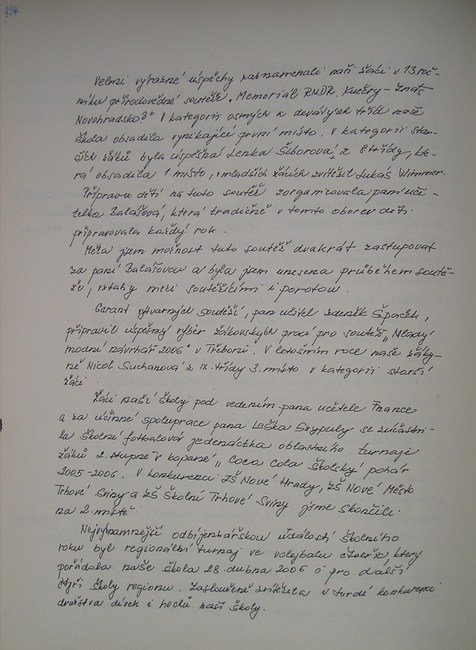 Velmi výrazné úspěchy zaznamenali naši žáci v 13. roč-
níku přírodovědné soutěže „Memoriál RNDR. Kučery - Znát
Novohradsko". V kategorii osmých a devátých tříd naše
škola obsadila vynikající první místo. V kategorii star-
ších žáků byla úspěšná Lenka Šiborová z 8. třídy, kte-
rá obsadila 1. místo, v mladších žácích zvítězil Lukáš Wimmer.
Přípravu dětí na tuto soutěž zorganizovala paní uči-
telka Balášová, která tradičně v tomto oboru děti
připravovala každý rok.
Měla jsem možnost tuto soutěž dvakrát zastupovat
za paní Balášovou a byla jsem unesena průběhem soutě-
že, vztahy mezi soutěžícími i porotou.
Garant výtvarných soutěží, pan učitel Zdeněk Špaček,
připravil úspěšný výběr žákovských prací pro soutěž „Mladý
módní návrhář 2006" v Třeboni. V letošním roce naše žáky-
ně Nicol Suchanová z IX. třídy 3. místo v kategorii starší
žáci.
Žáci naší školy pod vedením pana učitele France
a za účinné spolupráce pana Loška zúčastni-
la školní fotbalová jedenáctka oblastního turnaje
žáků 2. stupně v kopané „Coca Cola Školský pohár
2005-2006. V konkurenci ZŠ Nové Hrady, ZŠ Nové Město
Trhové Sviny a ZŠ Školní Trhové Sviny jsme skončili
na 2. místě.
Nejvýznamnější odbíjenkářskou událostí školního
roku byl regionální turnaj ve volejbalu čtveřic, který
pořádala naše škola 28. dubna 2006 i pro další
čtyři školy regionu. Zaslouženě zvítězila v tvrdé konkurenci
družstva dívek i hochů naší školy.